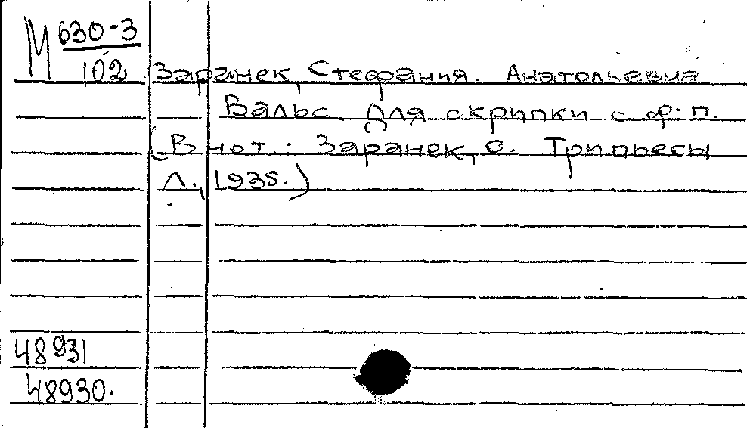 М 630-3
102
Заранек, Стефания. Анатольевна
Вальс для скрипки с ф.-п.
(В нот.: Заранек, С. Три пьесы
Л., 1935.)
48931
48930.